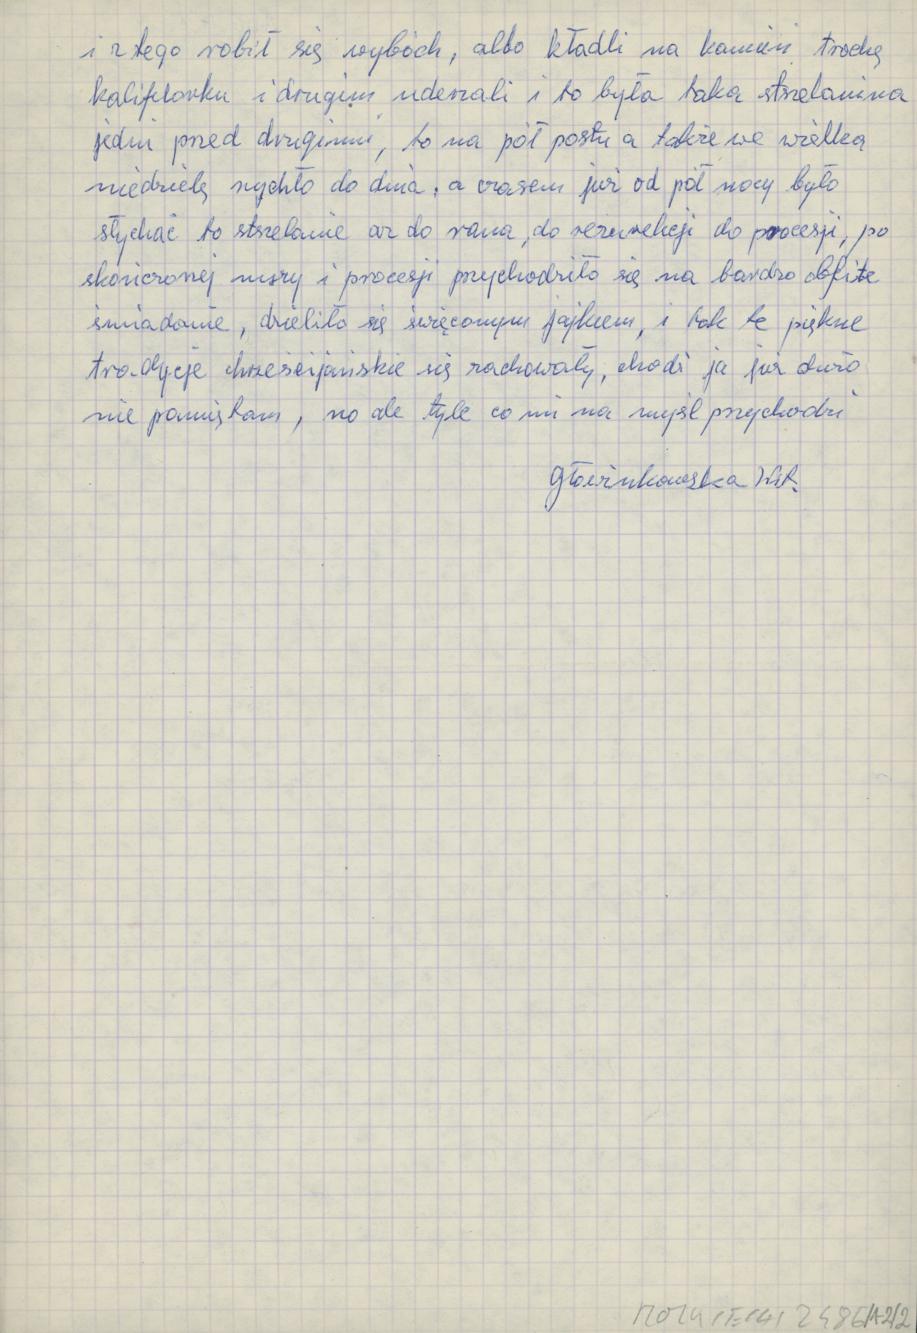 i z tego robił się wybóch, albo kładli na kamień trochę
kaliflorku i drugim uderzali i to była taka strzelanina
jedni przed drugimi, to na pół postu a także we wielką
niedzielę rychło do dnia, a czasem już od pół nocy było
słychać to strzelanie aż do rana, do rezurekcji do procesji, po
skończonej mszy i procesji przychodziło się na bardzo obfite
śniadanie, dzieliło się święconym jajkiem, i tak te piękne
tradycje chrześcijańskie się zachowały, chodź ja już dużo
nie pamiętam, no ale tyle co mi na myśl przychodzi